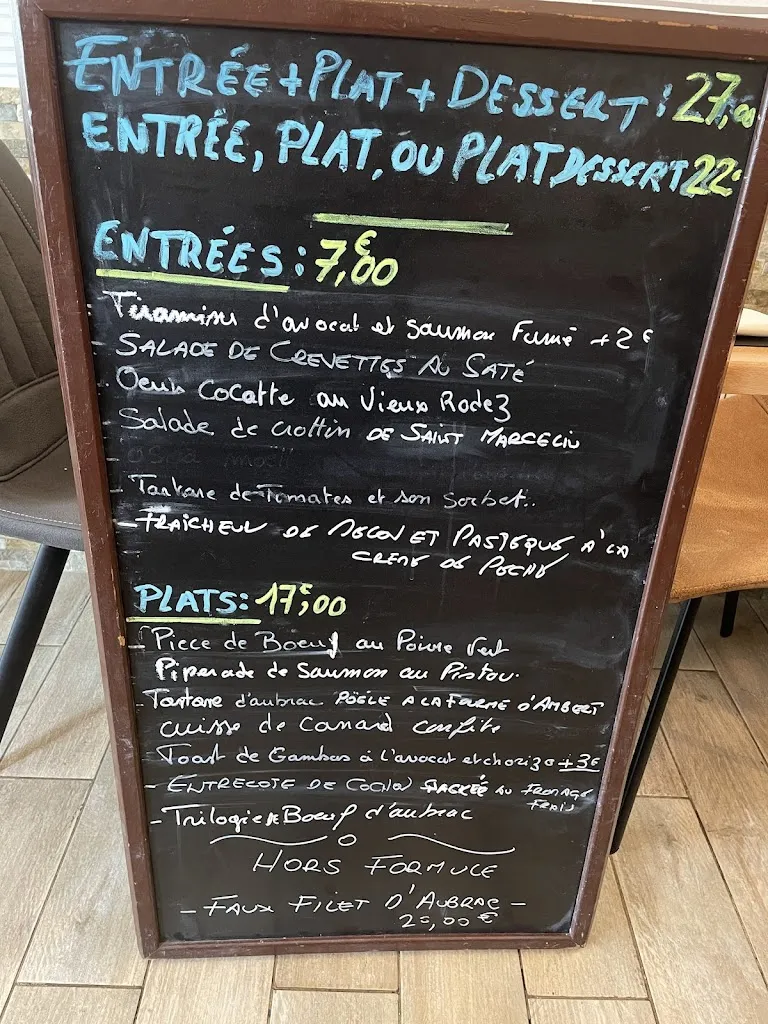 ENTRÉE + PLAT + DESSERT : 27,00
ENTRÉE, PLAT, OU PLAT DESSERT 22€
ENTRÉES : 7,00€
- Tiramisu d'avocat et saumon Fumé +2€
- SALADE DE CREVETTES AU SATÉ
- Oeufs cocotte au Vieux Rodez
- Salade de crottin DE SAINT MARCELIN
- Tartare de Tomates et son Sorbet..
- FRAÎCHEUR DE MELON ET PASTEQUE A LA
CREME DE PECHE
PLATS : 17,00€
- Piece de Boeuf au Poivre Vert
Piperade de Saumon au Pistou.
- Tartare d'aubrac POÊLÉ A LA FOURME D'AMBERT
- cuisse de canard confite
- Toast de Gambas à l'avocat et chorizo +3€
- ENTRECOTE DE COCHON LAQUÉE AU FROMAGE
FRAIS
- Trilogie de Boeuf d'aubrac
HORS FORMULE
- FAUX FILET D'AUBRAC -
20,00€